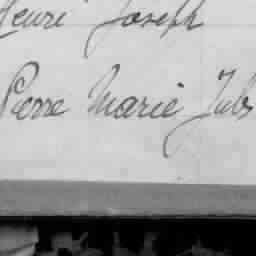 Henri Joseph
Pierre Marie Jules